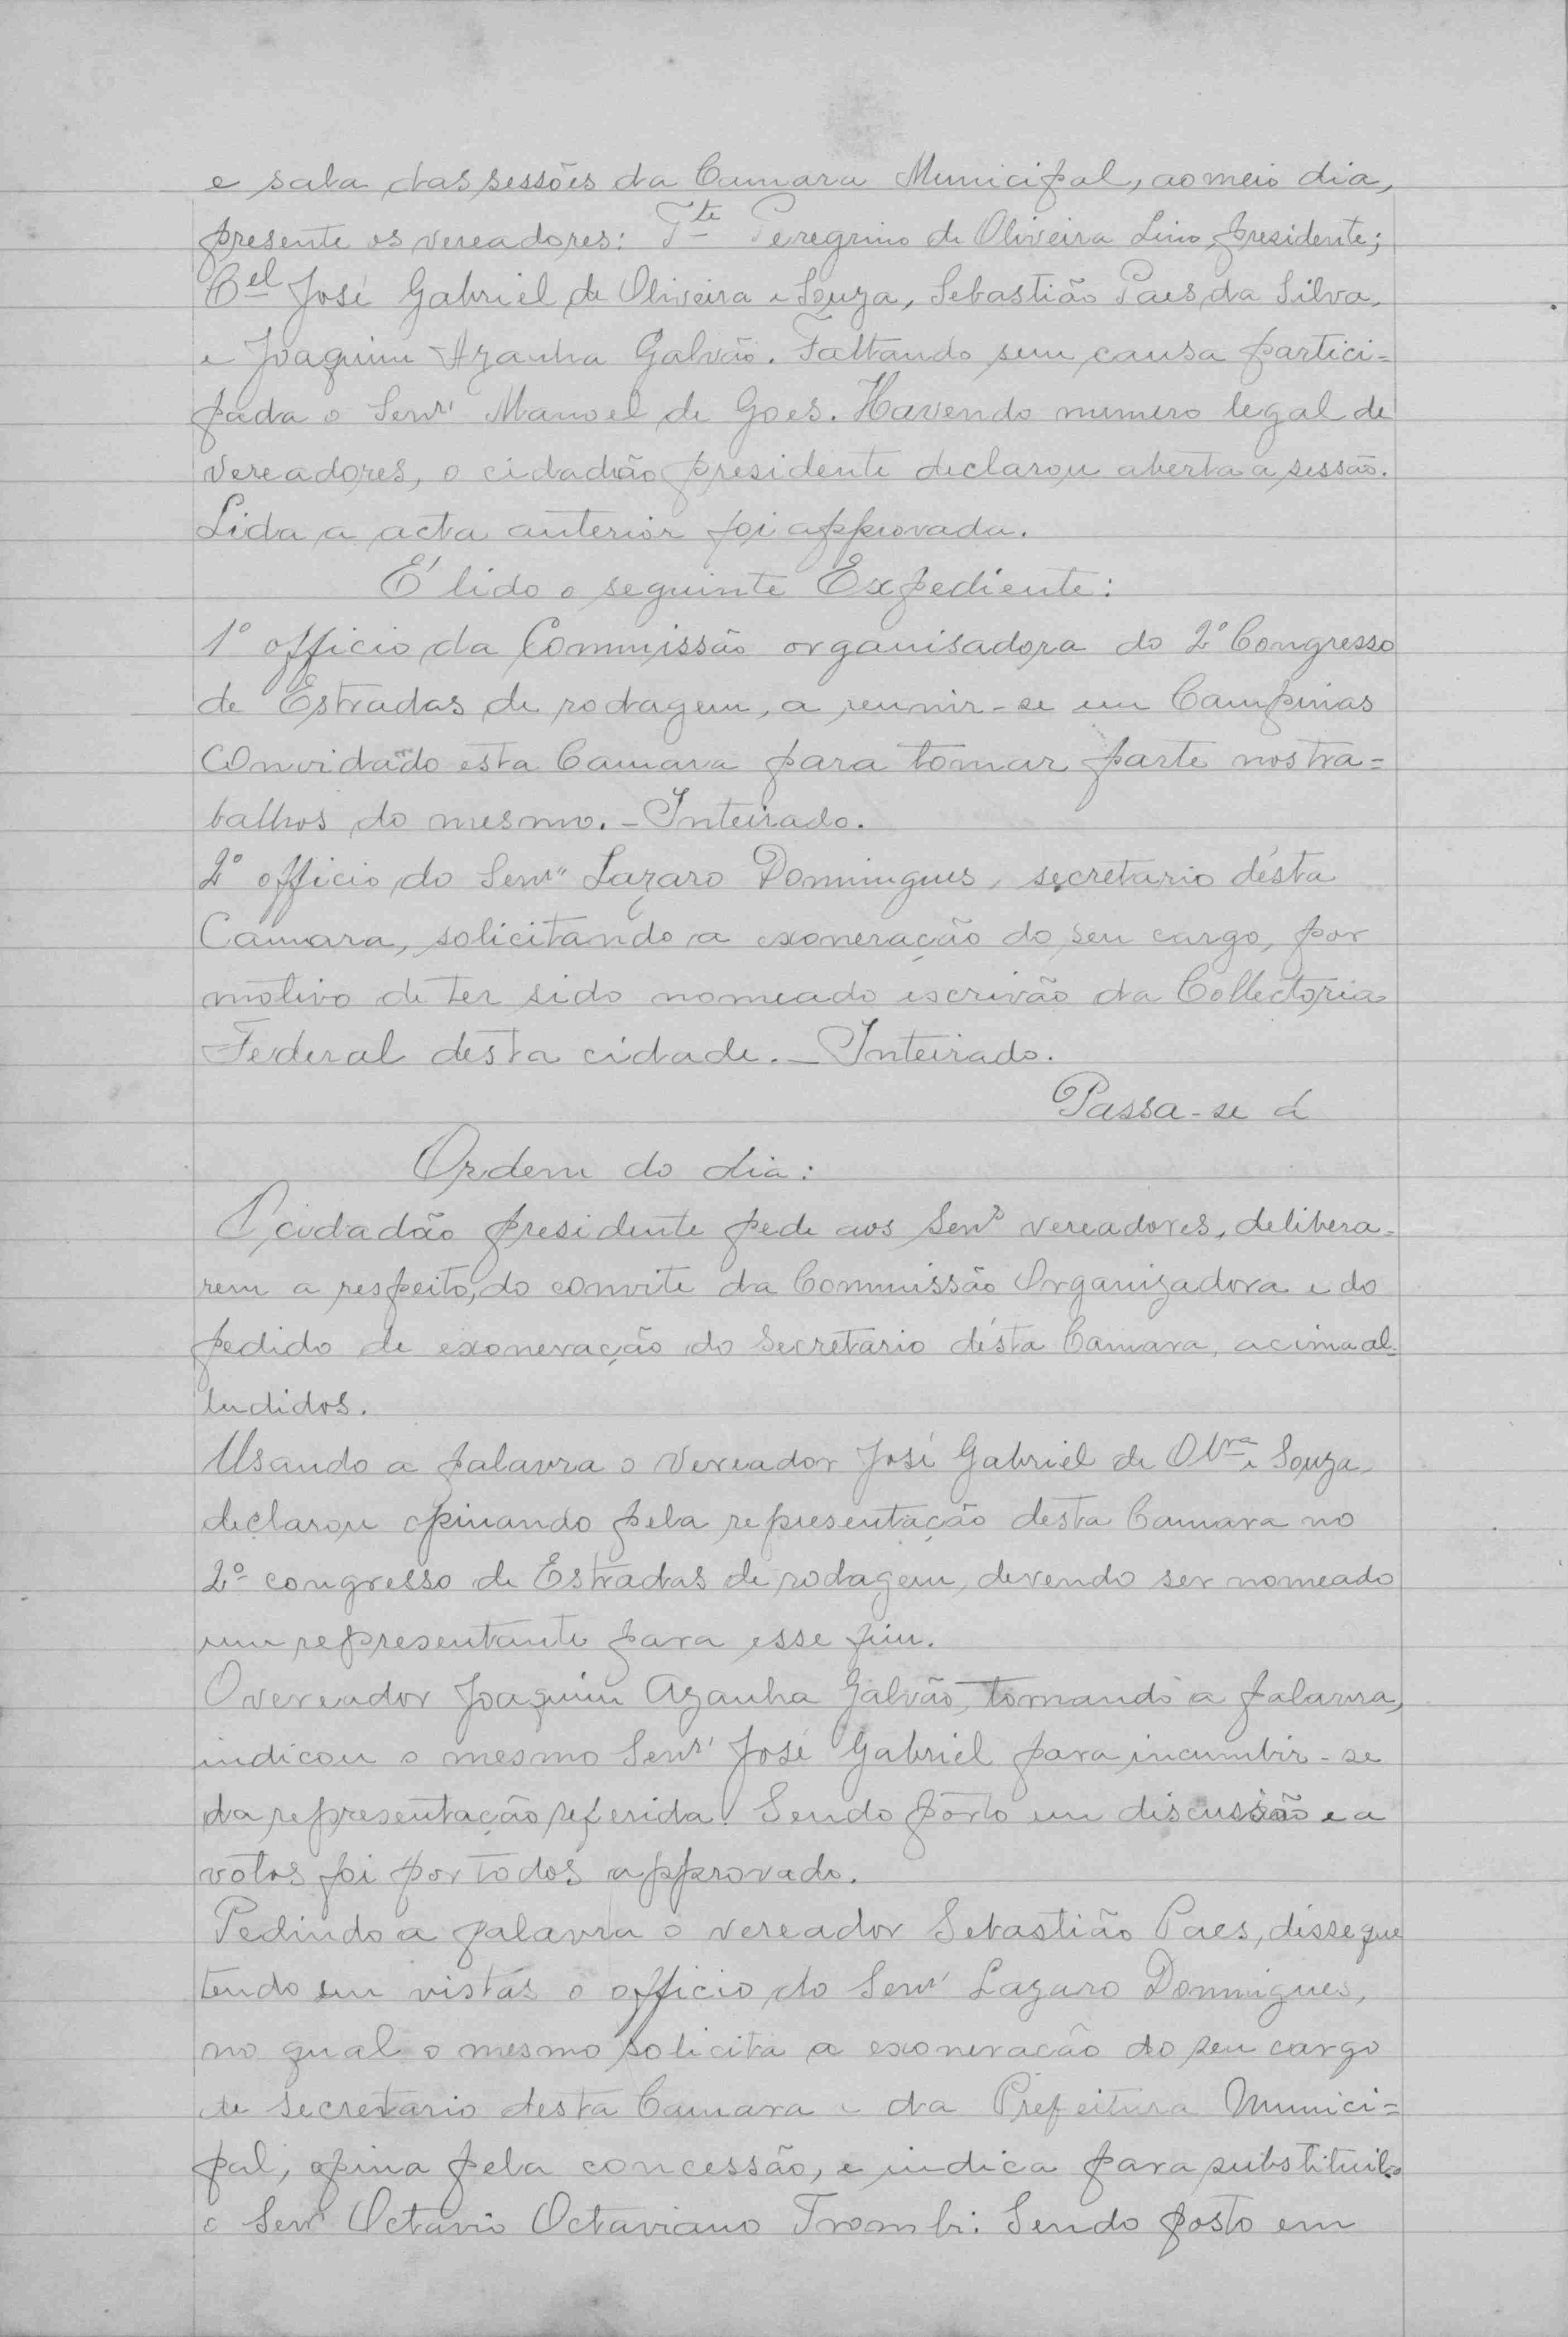 e sala das sessões da Camara Municipal, ao meio dia,
presente os vereadores: Tte Peregrino de Oliveira Lino, presidente;
Cel José Gabriel de Oliveira e Souza, Sebastião Paes da Silva,
e Joaquim Azanha Galvão. Faltando sem causa partici=
pada o Senr Manoel de Goes. Havendo numero legal de
vereadores, o cidadão presidente declarou aberta a sessão.
Lida a acta anterior foi approvada.
É lido o seguinte Expediente:
1º officio da Commissão organisadora do 2º Congresso
de Estradas de rodagem, a reunir-se em Campinas
convidado esta Camara para tomar parte nos tra=
balhos do mesmo. - Inteirado.
2º officio do Senr Lazaro Domingues, secretario désta
Camara, solicitando a exoneração do seu cargo, por
motivo de ter sido nomeado escrivão da Collectoria
Federal desta cidade. - Inteirado.
Passa-se á
Ordem do dia:
O cidadão presidente pede aos Senrs vereadores, delibera-
rem a respeito, do convite da Commissão Organizadora e do
pedido de exoneração do Secretario désta Camara, acima al-
ludidos.
Usando a palavra o vereador José Gabriel de Olvra e Souza,
declarou opinando pela representação desta Camara no
2º congresso de Estradas de rodagem, devendo ser nomeado
um representante para esse fim.
O vereador Joaquim Azanha Galvão, tomando a palavra,
indicou o mesmo Senr José Gabriel para incumbir-se
da representação referida. Sendo pôsto em discussão e a
votos foi por todos approvado.
Pedindo a palavra o vereador Sebastião Paes, disse que
tendo em vistas o officio do Senr Lazaro Domingues,
no qual o mesmo solicita a exoneração do seu cargo
de secretario desta Camara e da Prefeitura Munici=
pal, opina pela concessão, e indica para substituil-o
o Senr Octavio Octaviano Trombi. Sendo posto em